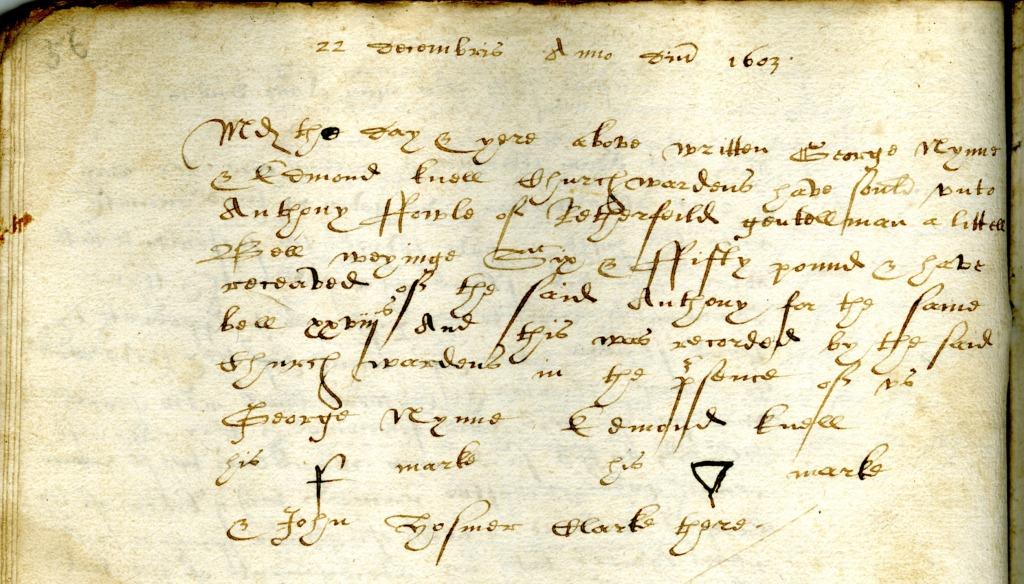 36
22 decembris Anno dm̄ 1603.
Md the day & yere above written George Nynne
& Edmond knell Church wardens have sould unto
Anthony ffowle of Retherfeild gentellman a littell
Bell weyinge Six & ffifty pound & have
receaved of the said Anthony for the same
bell xxviijs And this was recorded by the said
Church wardens in the psence of us
George Nynne Edmond knell
his marke his marke
& John Hosmer Clarke there.